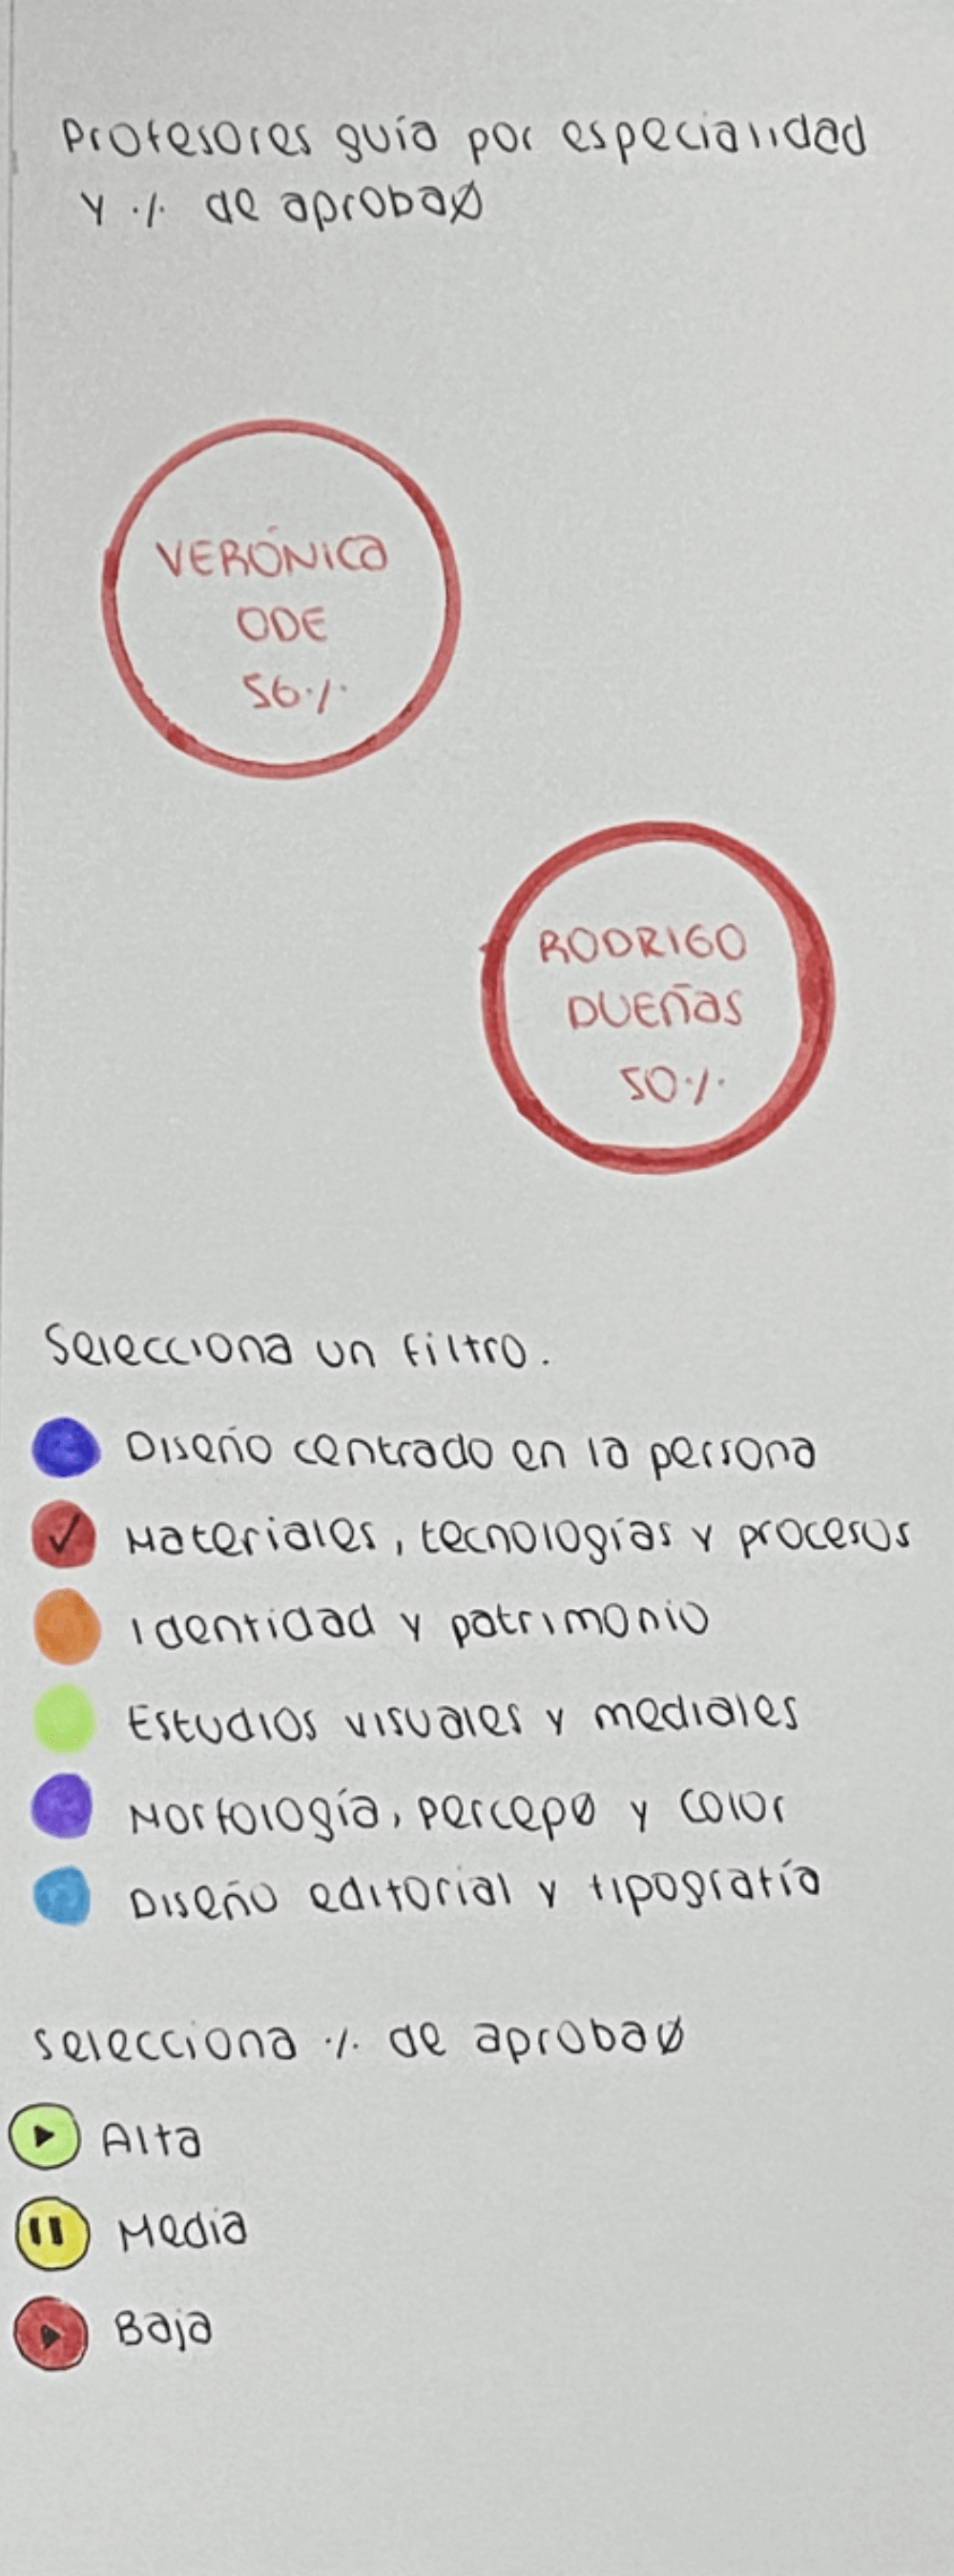 Profesores guía por especialidad
y % de aprobaØ
VERÓNICA
ODE
56%
RODRIGO
DUEÑAS
50%
Selecciona un filtro.
Diseño centrado en la persona
Materiales, tecnologías y procesos
Identidad y patrimonio
Estudios visuales y mediales
Morfología, percepØ y color
Diseño editorial y tipografía
selecciona % de aprobaØ
Alta
Media
Baja